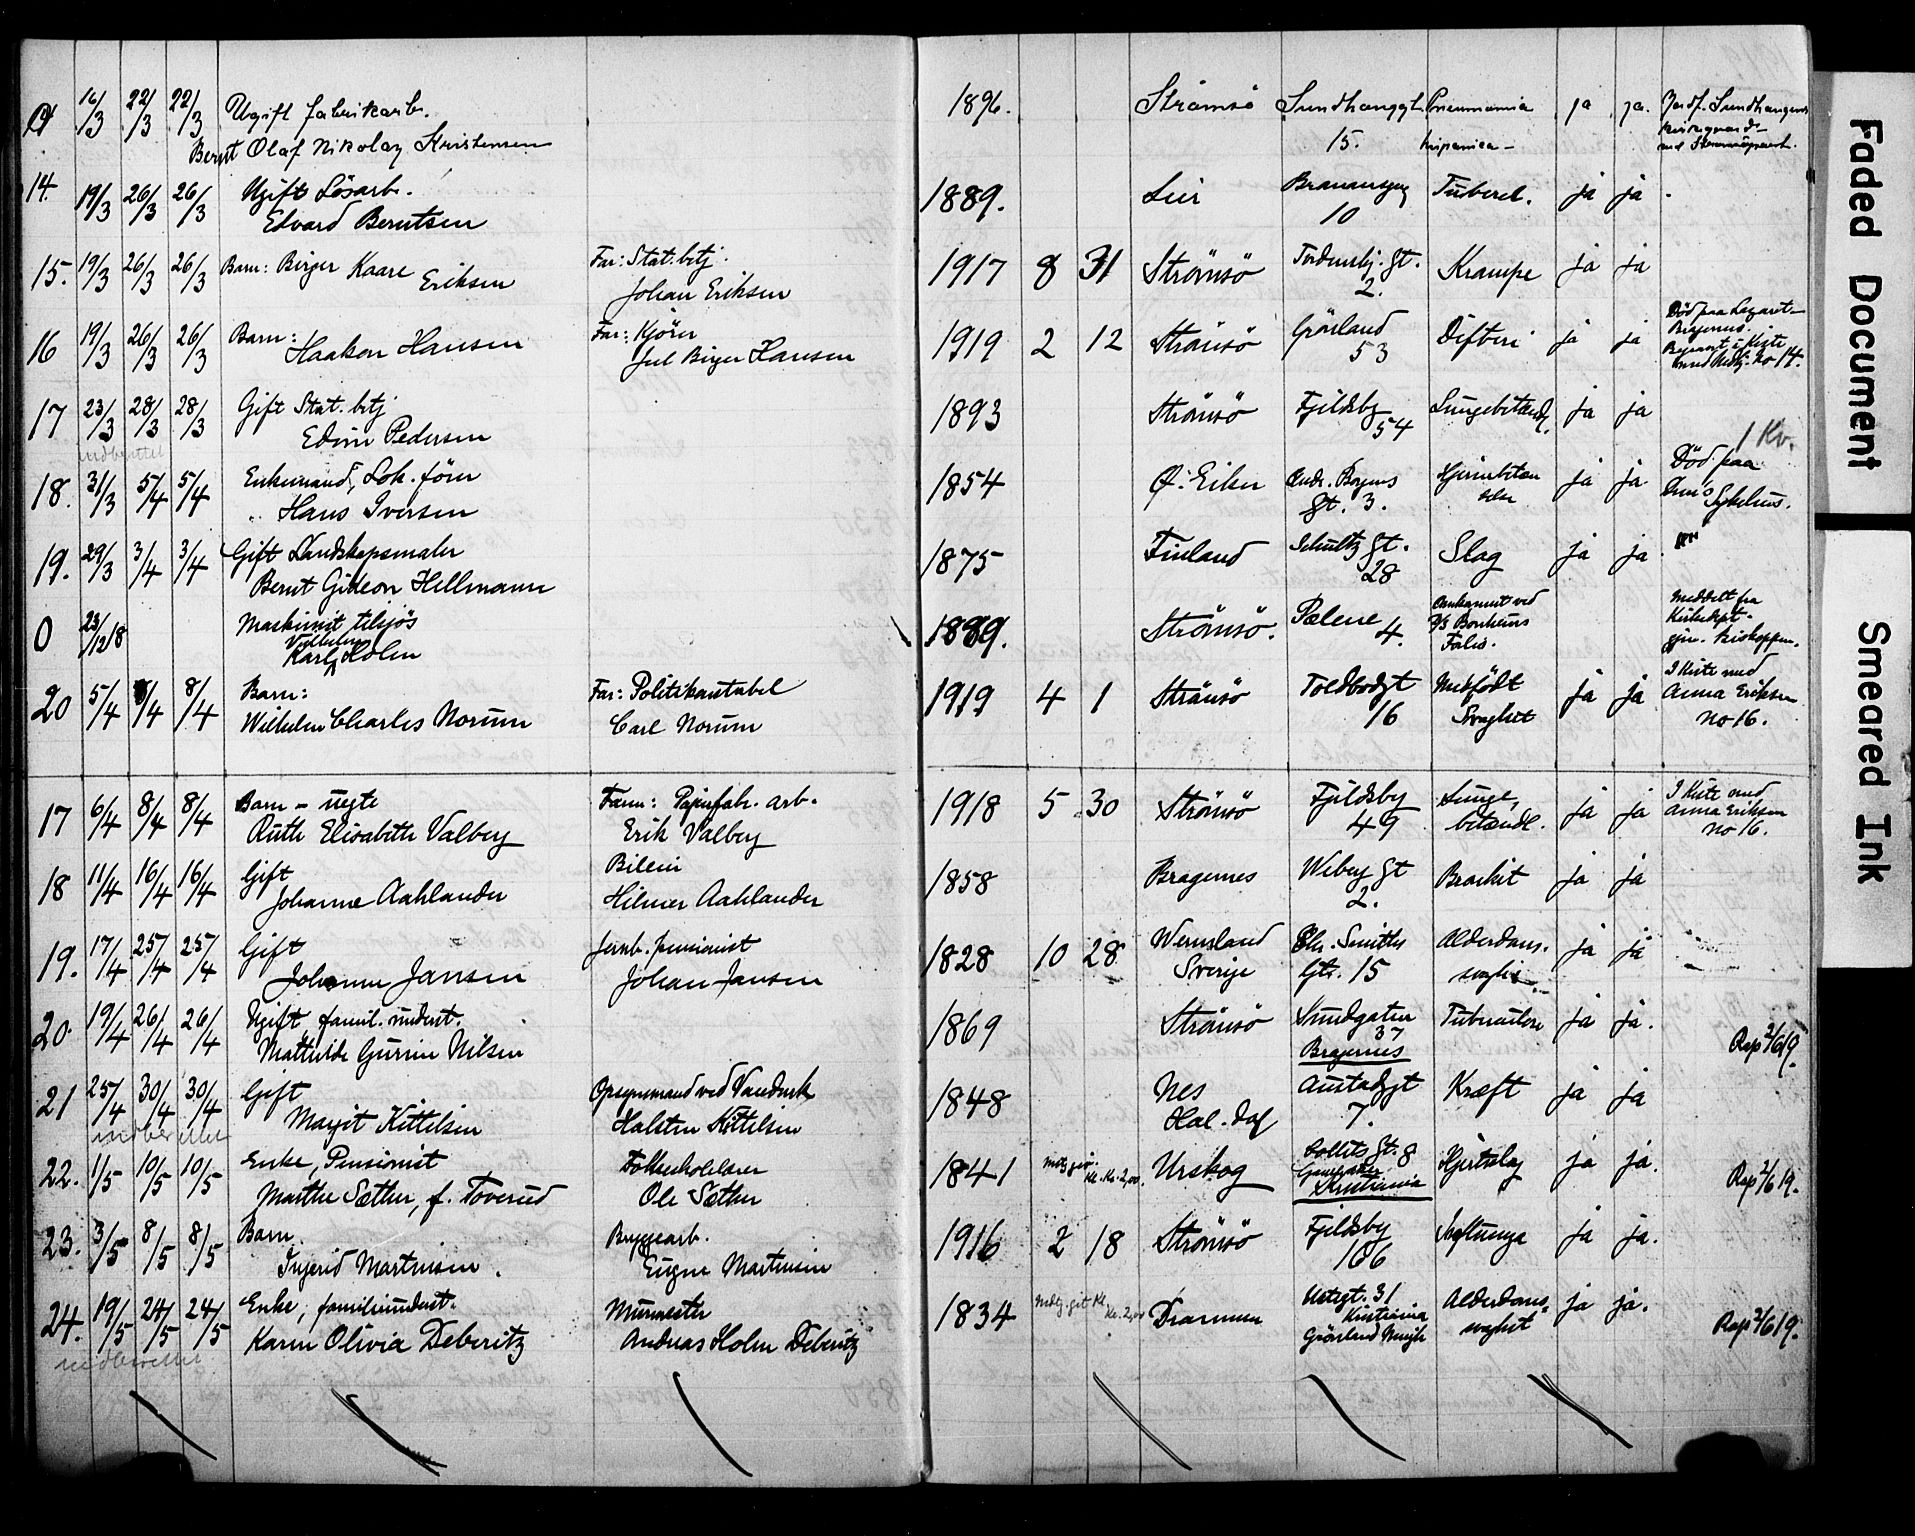 16/3 22/3 22/3 Ugift fabrikarb. 1896. Strømsø Sundhauggt. Pneumonia ja ja.
Bernt Olaf Nikolay Kristensen 15.
14. 19/3 26/3 26/3 Ugift Løsarb. 1889. Lier 10 Tuberel. ja ja
Edvard Berntsen
15. 19/3 26/3 26/3 Barn: Birger Kaare Eriksen Far: Stat.betj. 1917 8 31 Strømsö Tordenskj. gt. 2. Krampe ja ja
Johan Eriksen
16 19/3 26/3 26/3 Barn: Far: Kjörer 1919 2 12 Strömsö Grönland 53 Difteri ja ja Död paa Lazaret
Haakon Hansen Jul Birger Hansen Bragernes.
no 14.
17 23/3 28/3 28/3 Gift Stat. betj 1893 Strömsö Fjeldsby 54 Lungebetænd. ja ja
Edvin Pedersen 1 Kv.
indberettet
18. 31/3 5/4 5/4 Enkemand, Lok. förer 1854 Ø. Eiker gt. 3. ja ja Död paa
Hans Iversen Sykehus.
19. 29/3 3/4 3/4 Gift Landskapsmaler 1875 Finland Schultz gt. 28 Slag ja ja
Bernt Gideon Hellmann
0 23/12 18 Maskinist tilsjös 1889. Strömsö. Pælene 4. Omkommet ved Meddelt fra
Vilhelm D/S
Karl Holm gjn. Biskoppen.
20 5/4 8/4 8/4 Barn: Far: Politikonstabel 1919 4 1 Strömsö Toldbodgt 16 Medfödt Svaghet ja ja I Kiste med
Wilhelm Charles Norum Carl Norum Anna Eriksen
no 16.
17 6/4 8/4 8/4 Barn - uegte Farm: Papirfabr. arb. 1918 5 30 Strömsö Fjeldsby 49 Lunge, betændl. ja ja I Kiste med
Ruth Elisabeth Valberg Erik Valberg Anna Eriksen
no 16.
18 11/4 16/4 16/4 Gift 1858 Bragernes Wiberg gt 2. Bronkit ja ja
Johanne Aahlander Hilmer Aahlander
19. 17/4 25/4 25/4 Gift Jernb. pensionist 1828 10 28 Wermland Chr. Smiths Alderdoms. ja ja
Johanne Jansen Johan Jansen Sverige Gt. 15
20. 19/4 26/4 26/4 Ugift, famil. underst. 1869 Strömsö Sundgaten 37 Tuberkulose ja ja.
Mathilde Gurine Nilsen Bragernes Rap 2/6 19.
21 25/4 30/4 30/4 Gift Opsynsmand ved Vandverk 1848 Nes Austadgt Kræft ja ja
Margit Kittelsen Halsten Kittelsen Hal.dal 7.
indberettet
22. 1/5 10/5 10/5 Enke, Pensionist Folkeskolelærer 1841 Kr. 2,00. Urskog Collets gt. 8 Hjerteslag ja ja.
Marthe Sæther, f. Toverud Ole Sæther Kristiania Rap 2/6 19.
23. 3/5 8/5 8/5 Barn Bryggearb. 1916 2 18 Strömsö Fjeldsby ja ja.
Ingerid Martinsen. Eugen Martinsen 166
24. 19/5 24/5 24/5 Enke, familieunderst. Murmester 1834 Kr. 2,00 Drammen 31 Alderdoms, ja ja.
Karen Olivia Deberitz Andreas Holm Deberitz Kristiania svaghet
Grönland Menigh Rap 2/6 19.
indberettet
Faded Document
Smeared Ink